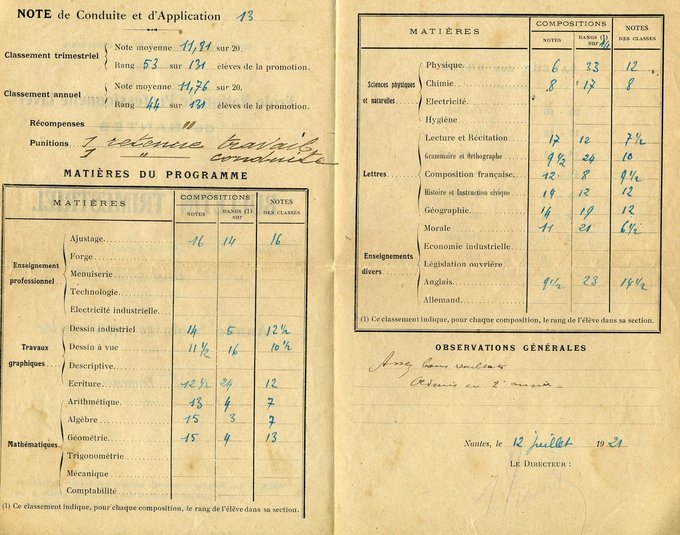 NOTE de Conduite et d'Application 13
Classement trimestriel
Note moyenne 11,91 sur 20.
Rang 53 sur 131 élèves de la promotion.
Classement annuel
Note moyenne 11,76 sur 20.
Rang 44 sur 131 élèves de la promotion.
Récompenses
Punitions 1 retenue travail
1 " conduite
MATIÈRES DU PROGRAMME
MATIÈRES COMPOSITIONS NOTES DES CLASSES
NOTES RANGS (1) sur
Enseignement professionnel
Ajustage 16 14 16
Forge
Menuiserie
Technologie
Electricité industrielle
Travaux graphiques
Dessin industriel 14 5 12 1/2
Dessin à vue 11 1/2 16 10 1/2
Descriptive
Ecriture 12 1/2 24 12
Mathématiques
Arithmétique 13 4 7
Algèbre 15 3 7
Géométrie 15 4 13
Trigonométrie
Mécanique
Comptabilité
(1) Ce classement indique, pour chaque composition, le rang de l'élève dans sa section.
MATIÈRES COMPOSITIONS NOTES DES CLASSES
NOTES RANGS (1) sur
Sciences physiques et naturelles
Physique 6 33 12
Chimie 8 17 8
Electricité
Hygiène
Lettres
Lecture et Récitation 17 12 7 1/2
Grammaire et Orthographe 9 1/2 24 10
Composition française 12 8 9 1/2
Histoire et Instruction civique 14 12 12
Géographie 14 19 12
Morale 11 21 6 1/2
Enseignements divers
Economie industrielle
Législation ouvrière
Anglais 9 1/2 23 14 1/2
Allemand
(1) Ce classement indique, pour chaque composition, le rang de l'élève dans sa section.
OBSERVATIONS GÉNÉRALES
Assez bons résultats
Admis en 2e année
Nantes, le 12 juillet 1921
LE DIRECTEUR :